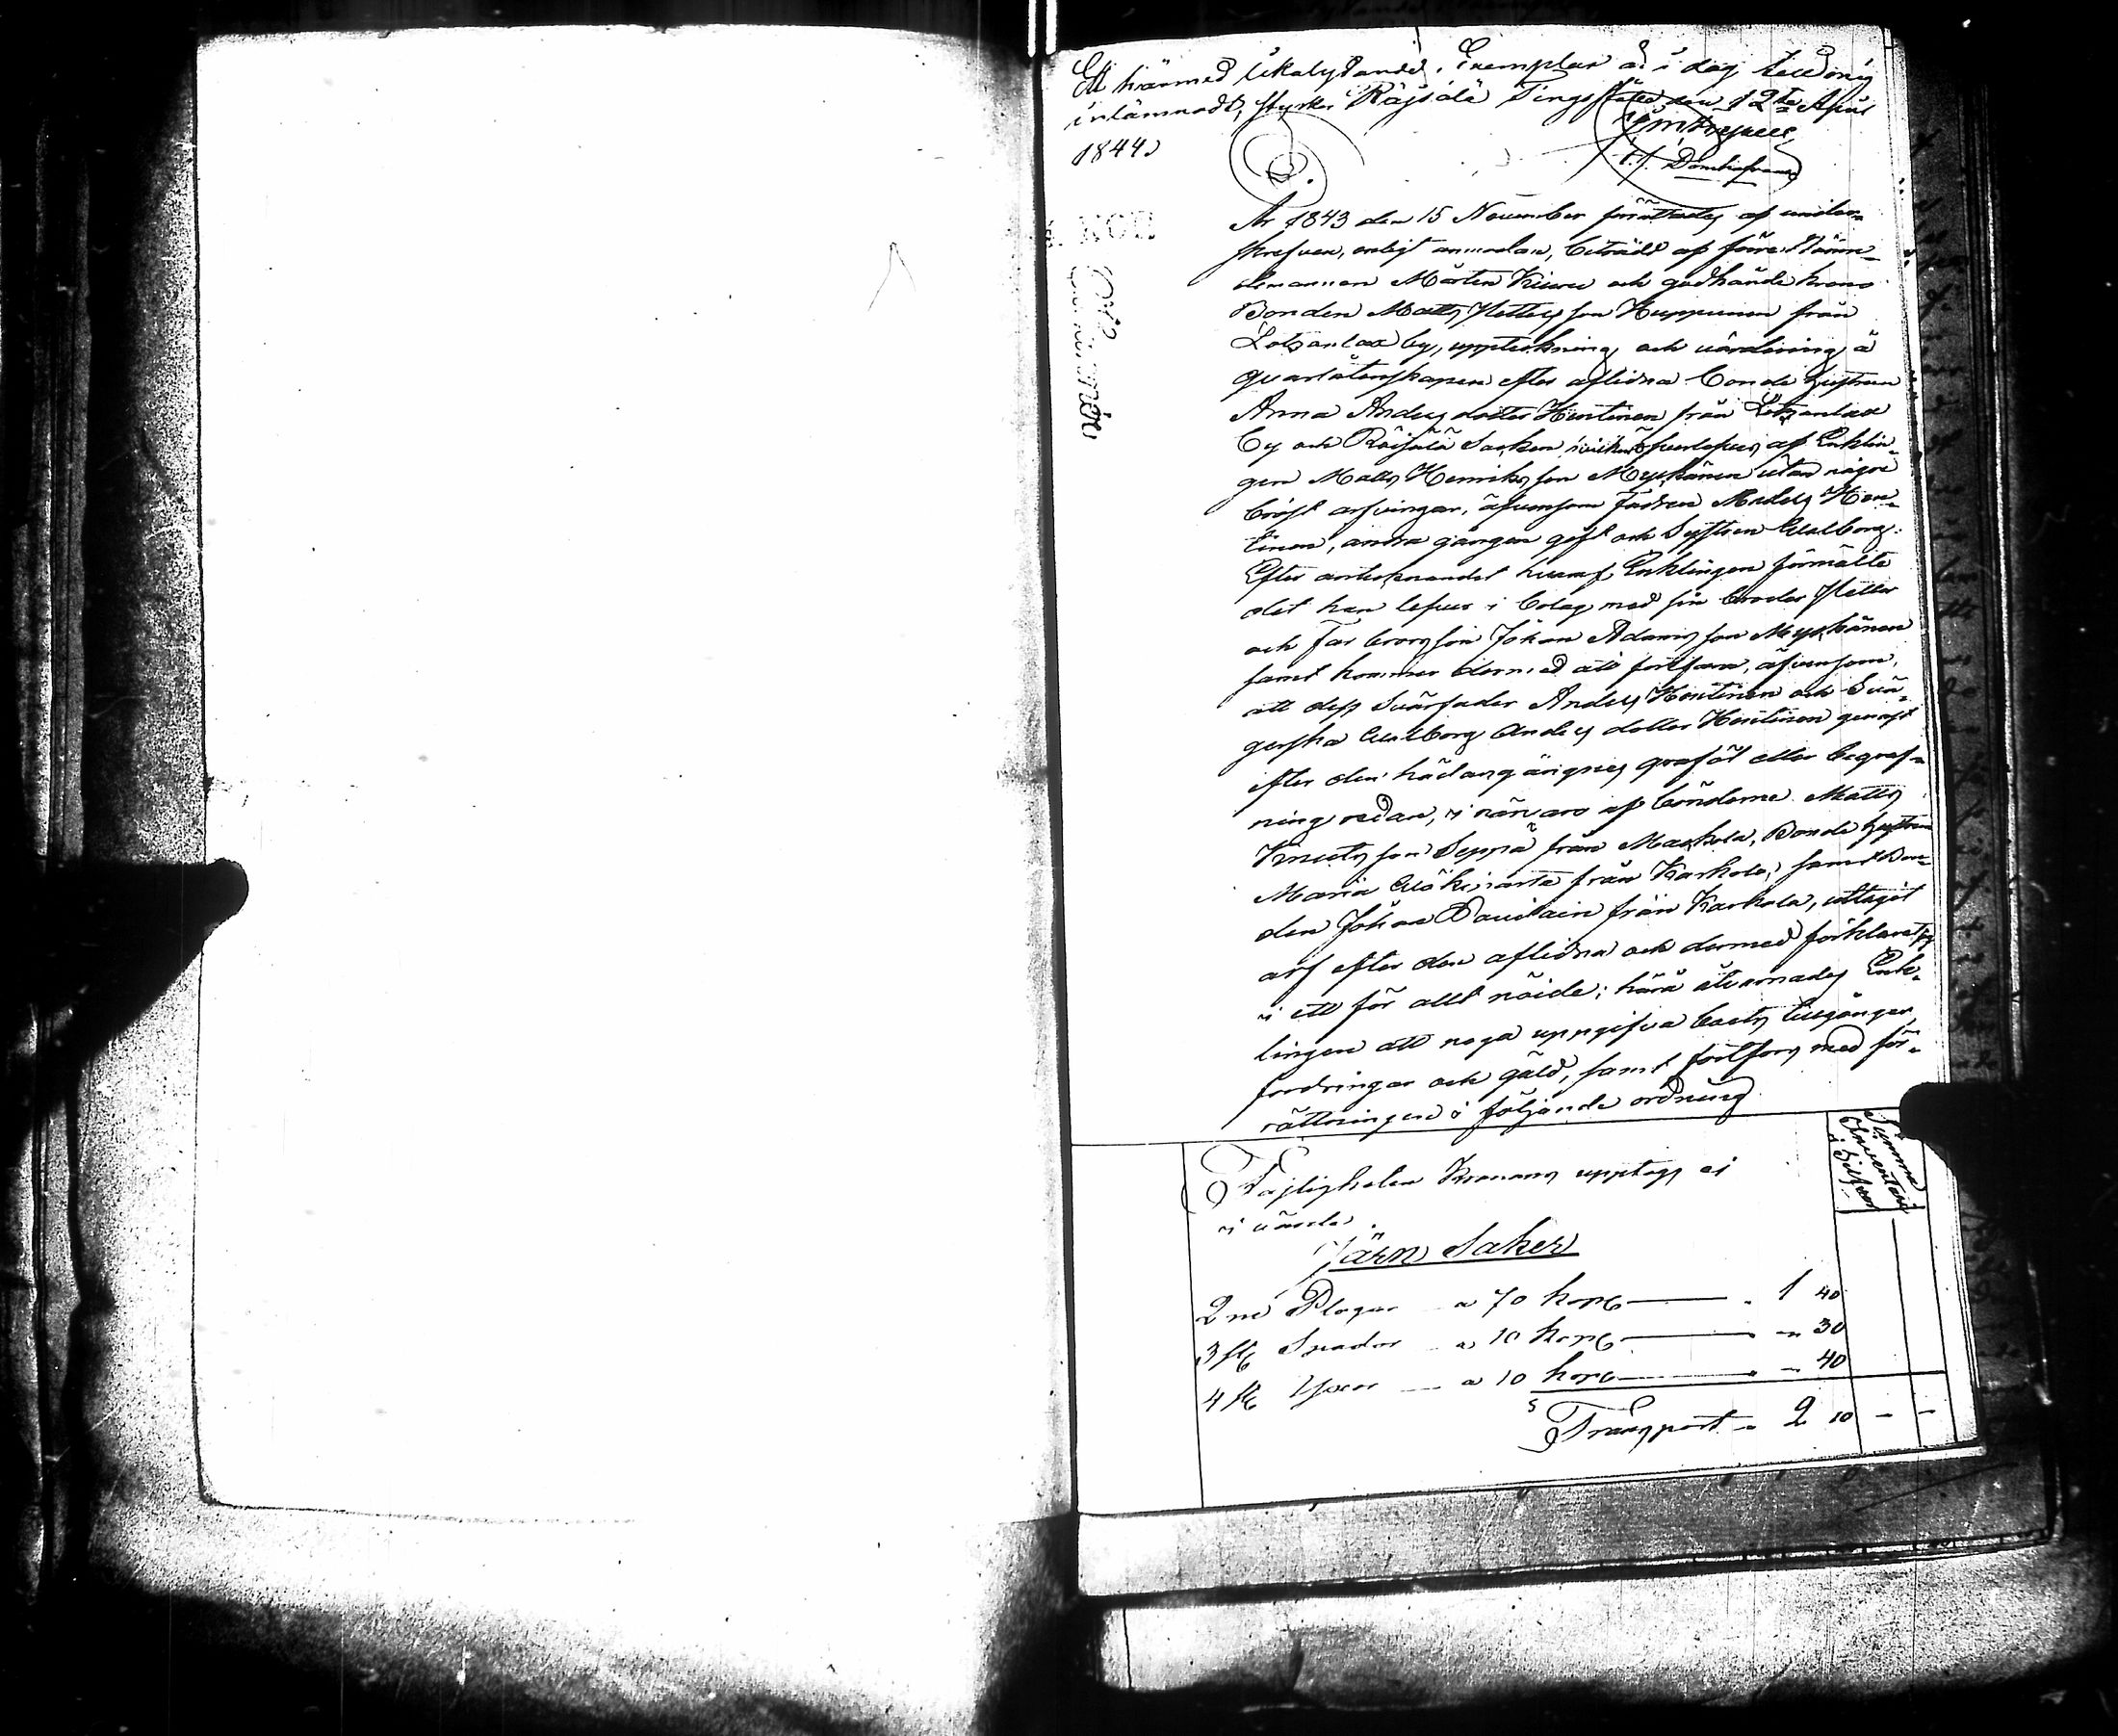 Ett härmed likalydande Exemplar är i dag till mig
inlämnadt, styrker Räisälä Tingsställe den 12te April
1844.
År 1843 den 15 November förrättades af under-
skrefven, enligt anmodan, biträdd af förre Nämn-
demannen Mårten Kiuru och godkände krono
Bonden Matts Petters son Huppunen från
Lotzanlax by, uppteckning och värdering å
qvarlåtenskapen efter aflidna Bonde hustrun
Anna Anders dotter Hentinen från Lotzanlax
by och Räisälä Socken, hvilken öfverlefves af Enklin-
gen Matts Henriks son Myhänen utan några
bröst arfvingar, äfvensom Fadren Anders Hen-
tinen, andra gången gift och Systren Walborg.
Efter antecknandet hvaraf, Enklingen förmälte
det han lefver i bolag med sin broder Petter
och Far brors son Johan Adams son Myhänen
samt kommer dermed att fortfara, äfvensom,
att dess Svärfader Anders Hentinen och Svä-
gerska Walborg Anders dotter Hentinen genast
efter den hädangångnes graföl eller begraf-
ning redan, i närvaro af bönderne Matts
son Seppä från Bonde hustrun
Maria från Karhola, samt Bon-
den Johan från Karhola, uttagit
arf efter den aflidna och dermed förklarat sig
i ett för allt nöjde; härå åtvarnades Enk-
lingen att noga uppgifva boets tillgångar,
fordringar och gäld, samt fortfors med för-
rättningen i följande ordning
Summa
Inventarii
i Silfver
Fastigheten Kronans upptogs ei
i värde.
Järn Saker
2ne Plogar a 70 kop. 1 40
3 st. Spador a 10 kop. " 30
4 st. Yxor a 10 kop. " 40
Transport 2 10 - -